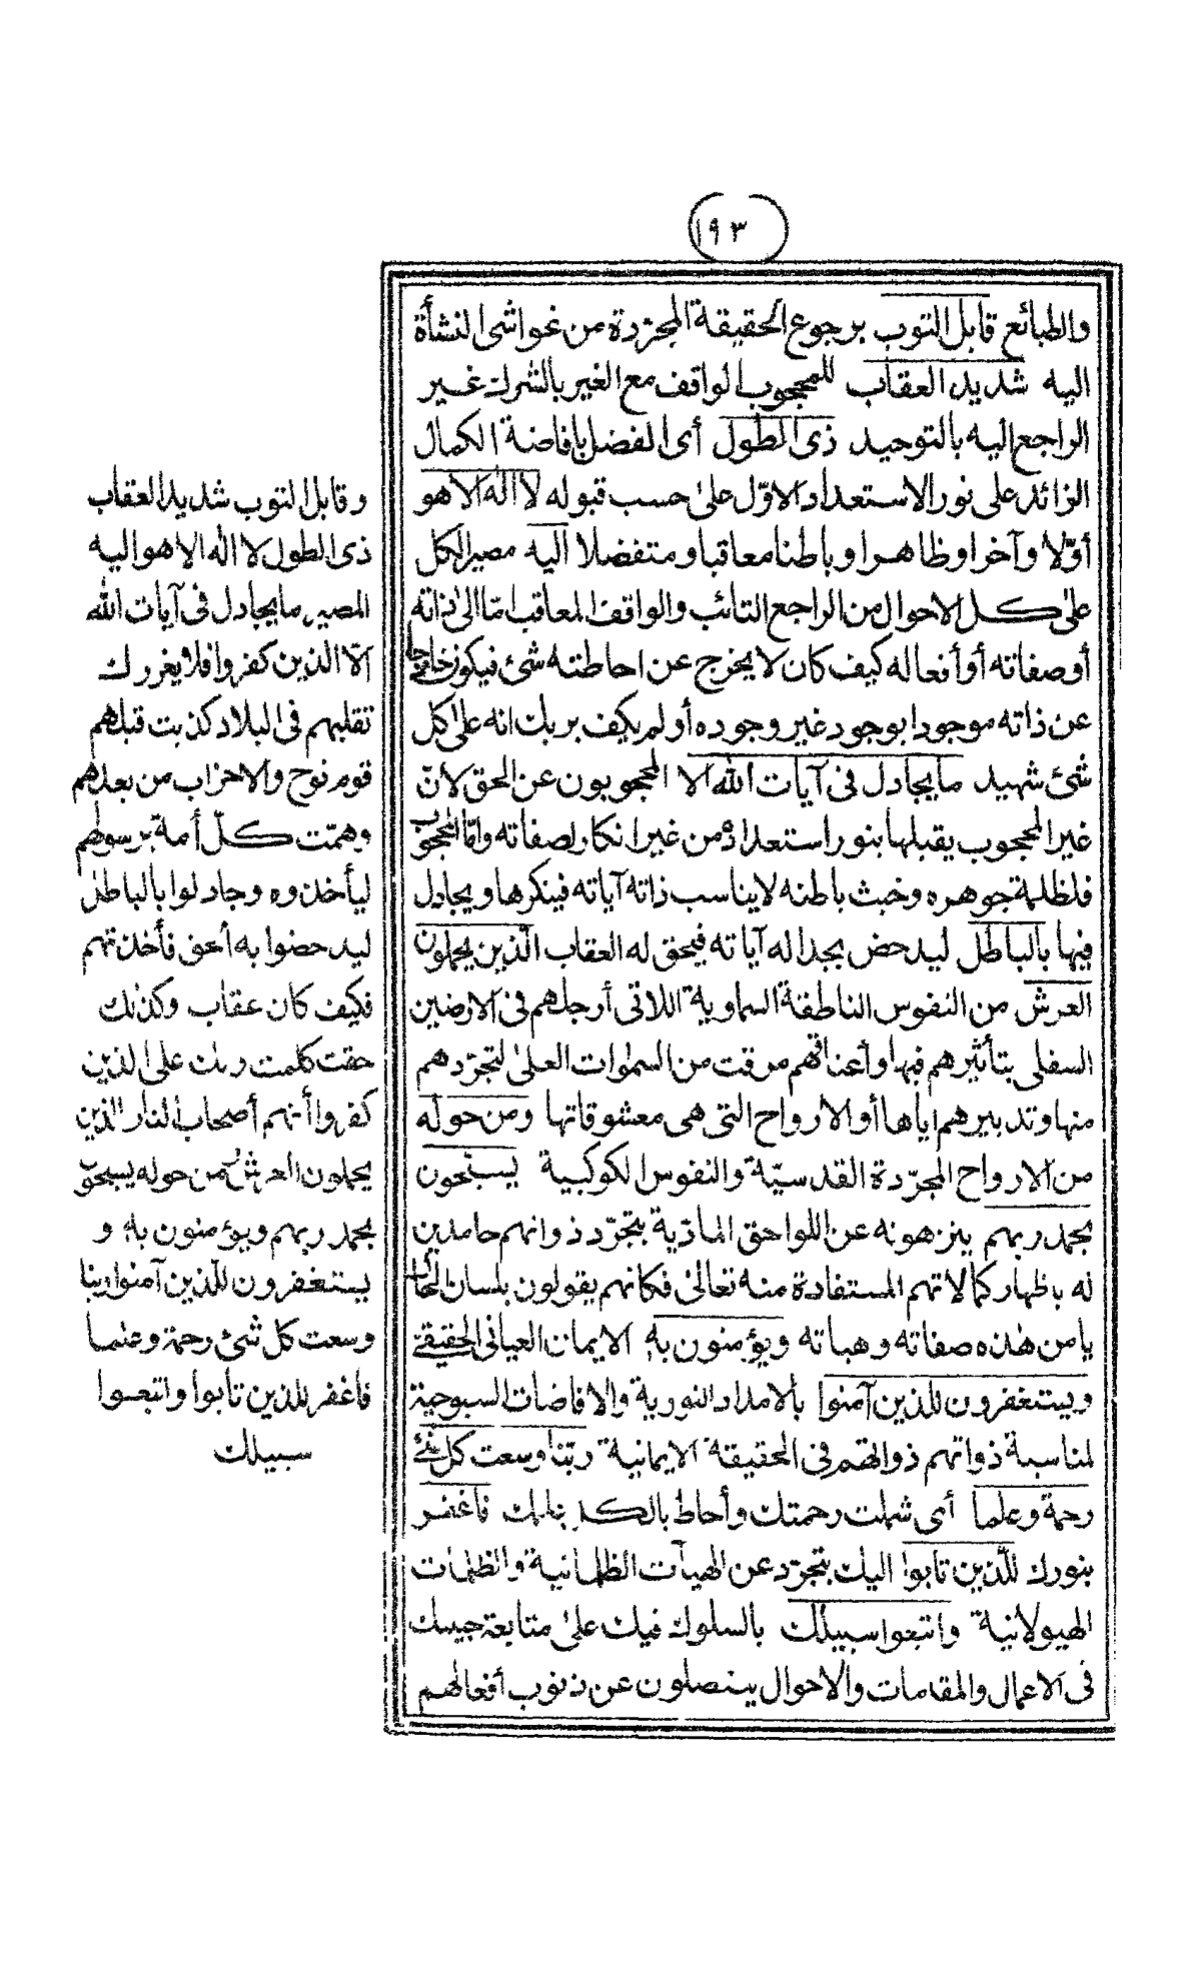 ١٩٣
والطبائع قابل التوب برجوع الحقيقة المجرّدة من غواشى النشأة
اليه شديد العقاب للمحجوب الواقف مع الغير بالشرك غير
الراجع اليه بالتوحيد ذى الطول أى الفضل بافاضة الكمال
الزائد على نور الاستعداد الاوّل على حسب قبوله لا اله الا هو
أوّلا وآخرا وظاهرا وباطنا معاقبا ومتفضلا اليه مصير الكل
على كل الاحوال من الراجع التائب والواقف المعاقب امّا الى ذاته
أو صفاته أو أفعاله كيف كان لا يخرج عن احاطته شئ فيكون خارجا
عن ذاته موجودا بوجود غير وجوده أولم يكف بربك انه على كل
شئ شهيد ما يجادل فى آيات الله الا المحجوبون عن الحق لانّ
غير المحجوب يقبلها بنور استعداده من غير انكار لصفاته وامّا المحجوب
فلظلمة جوهره وخبث باطنه لا يناسب ذاته آياته فينكرها ويجادل
فيها بالباطل ليدحض بجداله آياته فيحق له العقاب الّذين يحملون
العرش من النفوس الناطقة السماوية اللاتى أرجلهم فى الارضين
السفلى بتأثيرهم فيها وأعناقهم مرقت من السموات العلى لتجرّدهم
منها وتدبيرهم اياها أو الارواح التى هى معشوقاتها ومن حوله
من الارواح المجرّدة القدسيّة والنفوس الكوكبية يسبحون
بحمد ربهم ينزهونه عن اللواحق المادّية بتجرّد ذواتهم حامدين
له باظهار كمالاتهم المستفادة منه تعالى فكانهم يقولون بلسان الحال
يا من هذه صفاته وهباته ويؤمنون به الايمان العيانى الحقيقى
ويستغفرون للّذين آمنوا بالامداد النورية والافاضات السبوحية
لمناسبة ذواتهم ذواتهم فى الحقيقة الايمانية ربّنا وسعت كل شئ
رحمة وعلما أى شملت رحمتك وأحاط بالكل علمك فاغفر
بنورك للّذين تابوا اليك بتجرّد عن الهيآت الظلمانية والظلمات
الهيولانية واتبعوا سبيلك بالسلوك فيك على متابعة حبيبك
فى الاعمال والمقامات والاحوال يتنصلون عن ذنوب أفعالهم
وقابل التوب شديد العقاب
ذى الطول لا اله الا هو اليه
المصير ما يجادل فى آيات الله
الّا الذين كفروا فلا يغررك
تقلبهم فى البلاد كذبت قبلهم
قوم نوح والاحزاب من بعدهم
وهمّت كلّ أمة برسولهم
ليأخذوه وجادلوا بالباطل
ليدحضوا به الحق فأخذتهم
فكيف كان عقاب وكذلك
حقت كلمت ربك على الذين
كفروا أنهم أصحاب النار الذين
يحملون العرش ومن حوله يسبحون
بحمد ربهم ويؤمنون به و
يستغفرون للّذين آمنوا ربنا
وسعت كل شئ رحمة وعلما
فاغفر للذين تابوا واتبعوا
سبيلك